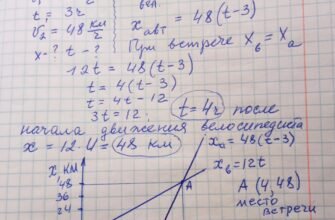 t₁ = 3ч
υ₂ = 48 км/ч
x-? t-?
вел
x авт = 48(t-3)
При встрече xв = xа
12t = 48(t-3)
t = 4(t-3)
t = 4t-12
3t = 12; t = 4ч после
начала движения велосипедиста
x = 12·4 = 48 км
x км
xа = 48(t-3)
48
A
xв = 12t
36
24
A (4,48)
место
встречи